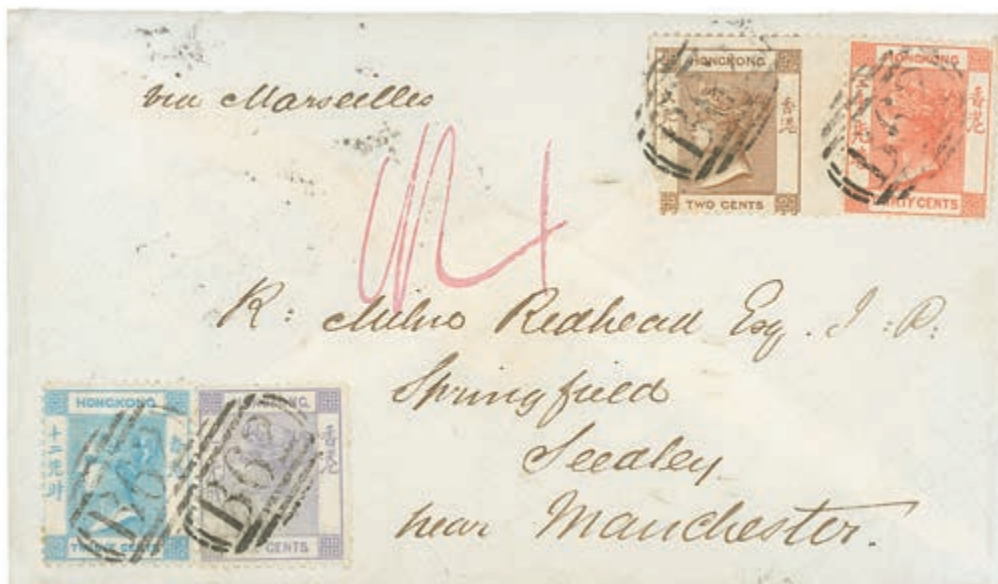 via Marseilles
HONGKONG
香港
TWO CENTS
HONGKONG
香港
CENTS
B62
R: Milno Redhead Esq. J:P:
Springfield
Seedley
near Manchester.
HONGKONG
十二先時
香港
CENTS
B62
HONGKONG
香港
CENTS
B62